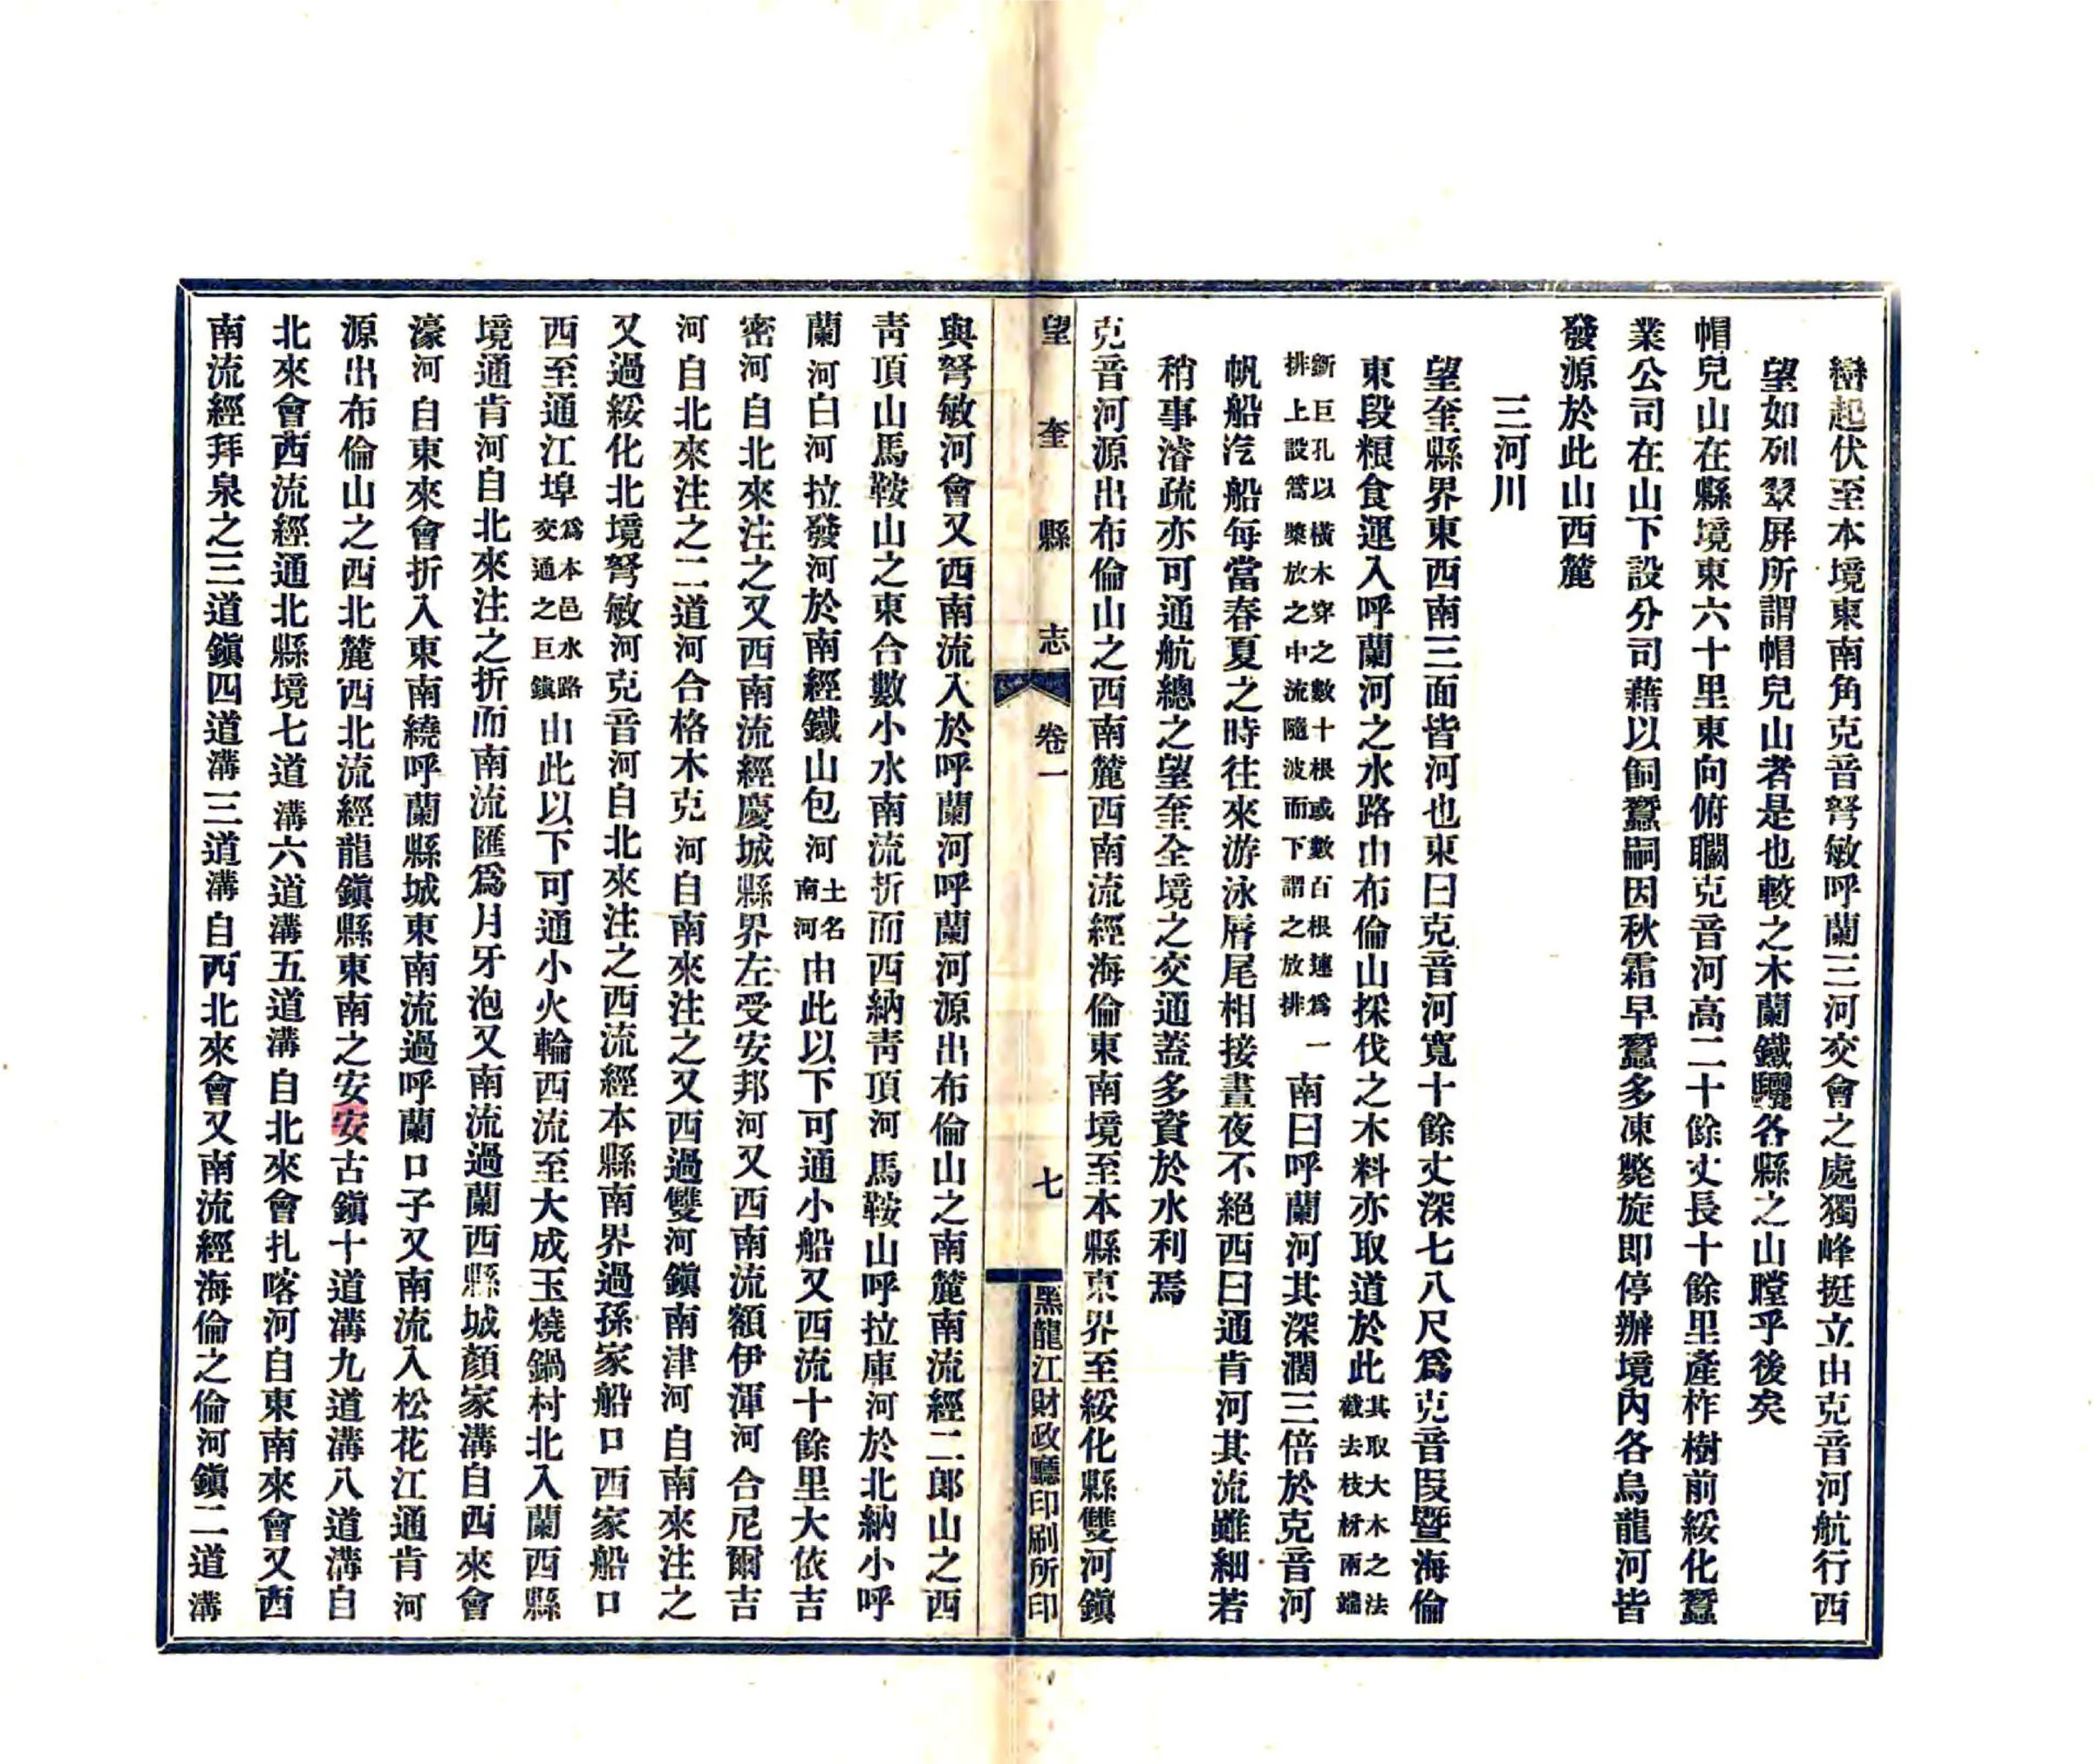 巒起伏至本境東南角克音弩敏呼蘭三河交會之處獨峰挺立由克音河航行西
望如列翠屏所謂帽兒山者是也較之木蘭鐵驪各縣之山瞠乎後矣
帽兒山在縣境東六十里東向俯瞷克音河高二十餘丈長十餘里產柞樹前綏化蠶
業公司在山下設分司藉以飼蠶嗣因秋霜早蠶多凍斃旋即停辦境內各烏龍河皆
發源於此山西麓
三河川
望奎縣界東西南三面皆河也東曰克音河寬十餘丈深七八尺爲克音段暨海倫
東段粮食運入呼蘭河之水路由布倫山採伐之木料亦取道於此其取大木之法截去枝枒兩端
斷巨孔以橫木穿之數十根或數百根連爲一排上設篙槳放之中流隨波而下謂之放排南曰呼蘭河其深濶三倍於克音河
帆船汽船每當春夏之時往來游泳脣尾相接晝夜不絕西曰通肯河其流雖細若
稍事濬疏亦可通航總之望奎全境之交通蓋多資於水利焉
克音河源出布倫山之西南麓西南流經海倫東南境至本縣東界至綏化縣雙河鎮
望奎縣志
卷一
七
黑龍江財政廳印刷所印
與弩敏河會又西南流入於呼蘭河呼蘭河源出布倫山之南麓南流經二郎山之西
靑頂山馬鞍山之東合數小水南流折而西納靑頂河馬鞍山呼拉庫河於北納小呼
蘭河白河拉發河於南經鐵山包河土名南河由此以下可通小船又西流十餘里大依吉
密河自北來注之又西南流經慶城縣界左受安邦河又西南流額伊渾河合尼爾吉
河自北來注之二道河合格木克河自南來注之又西過雙河鎮南津河自南來注之
又過綏化北境弩敏河克音河自北來注之西流經本縣南界過孫家船口西家船口
西至通江埠爲本邑水路交通之巨鎮由此以下可通小火輪西流至大成玉燒鍋村北入蘭西縣
境通肯河自北來注之折而南流匯爲月牙泡又南流過蘭西縣城顏家溝自西來會
濠河自東來會折入東南繞呼蘭縣城東南流過呼蘭口子又南流入松花江通肯河
源出布倫山之西北麓西北流經龍鎮縣東南之安安古鎮十道溝九道溝八道溝自
北來會西流經通北縣境七道溝六道溝五道溝自北來會扎喀河自東南來會又西
南流經拜泉之三道鎮四道溝三道溝自西北來會又南流經海倫之倫河鎮二道溝